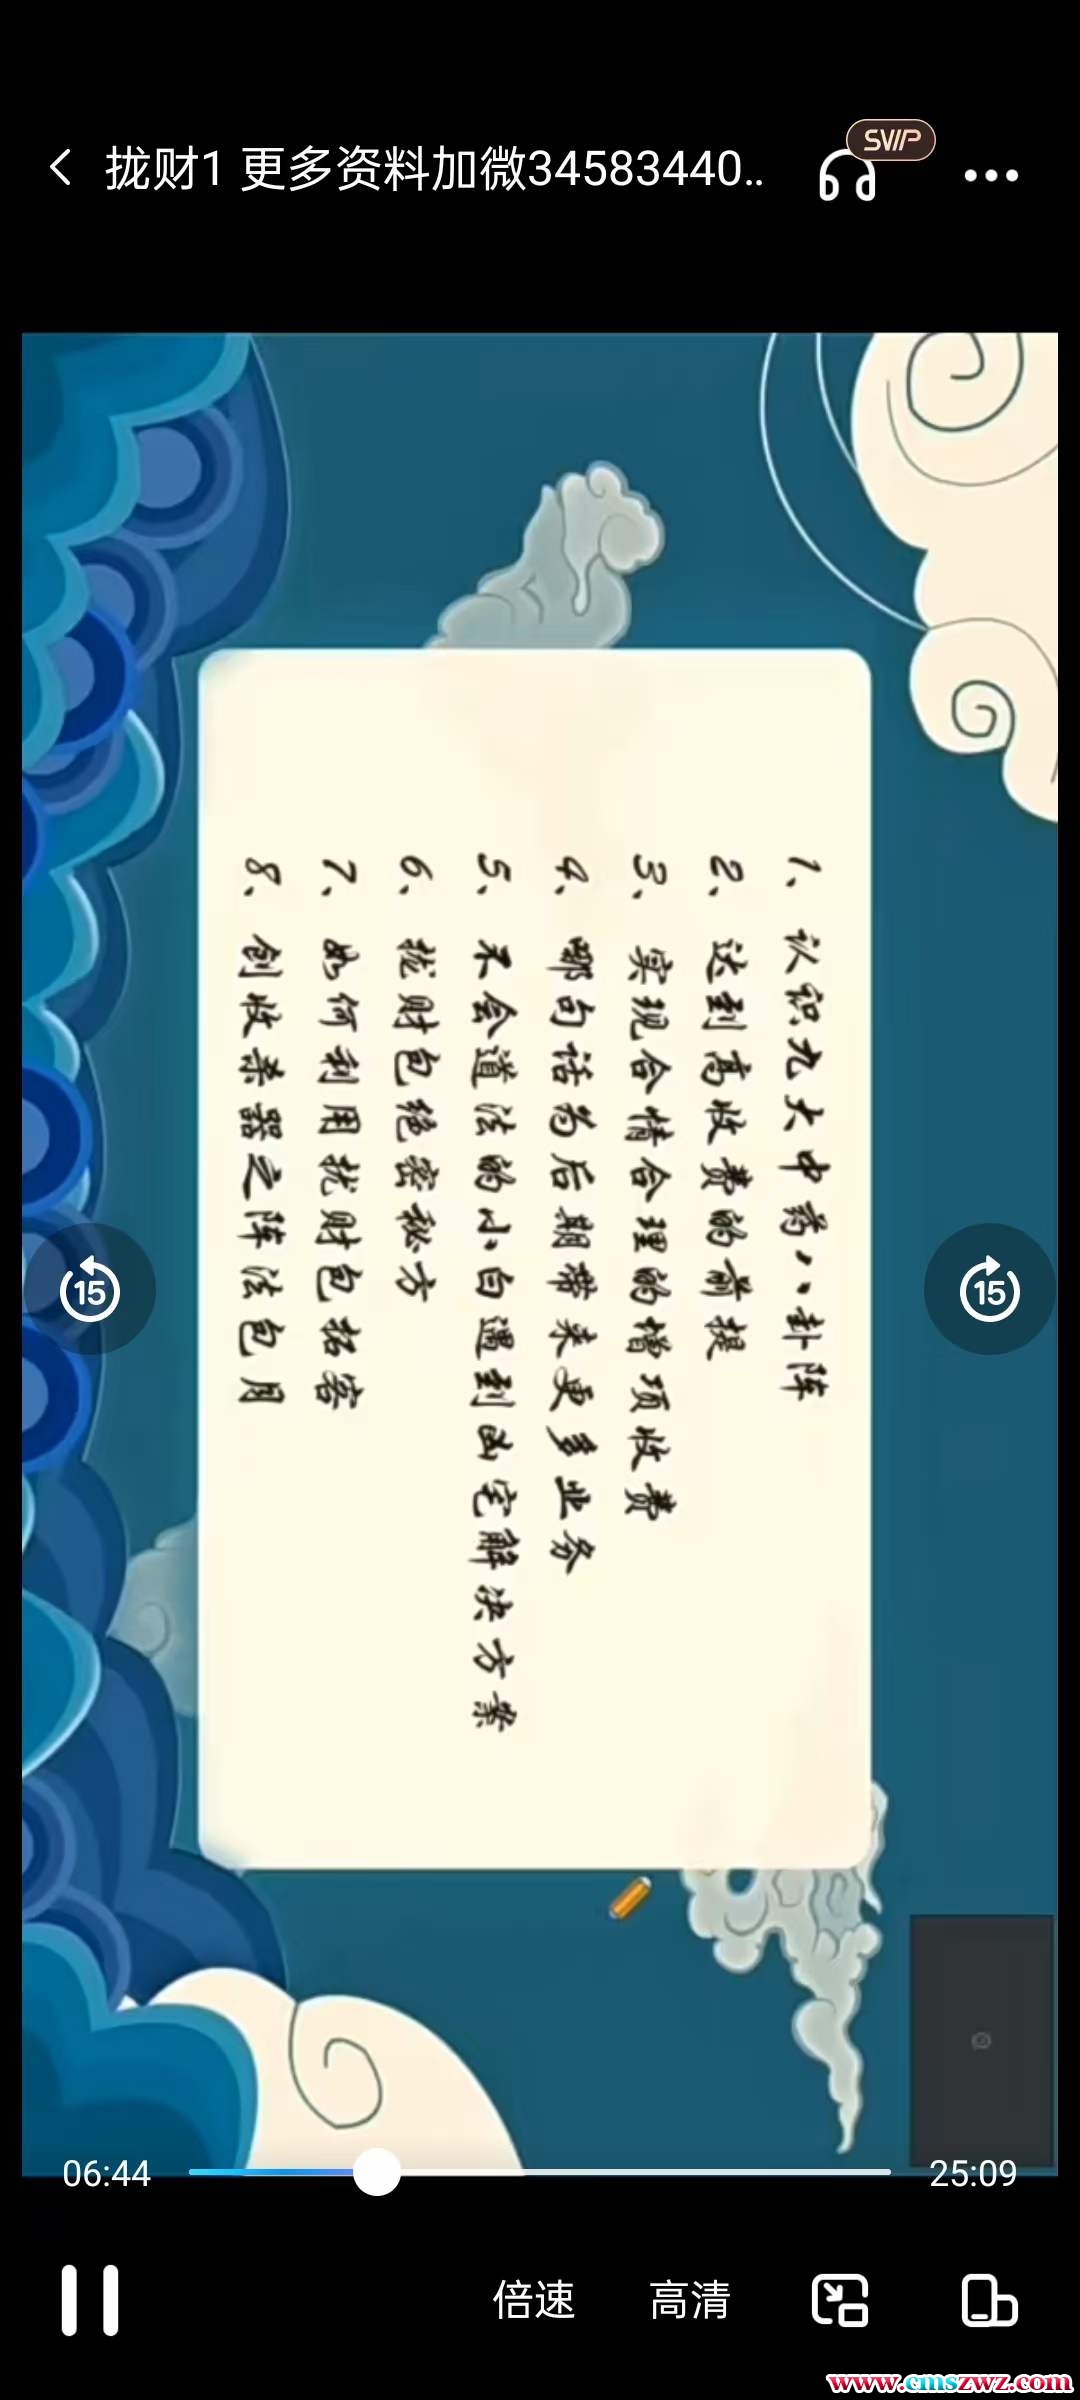 拢财1 更多资料加微34583440..
SVIP
1、认识九大中药八卦阵
2、达到高收费的前提
3、实现合情合理的增项收费
4、哪句话为后期带来更多业务
5、不会道法的小白遇到凶宅解决方案
6、拢财包绝密秘方
7、如何利用拢财包招客
8、创收杀器之阵法包月
15
15
06:44
25:09
倍速
高清
www.cmszwz.com